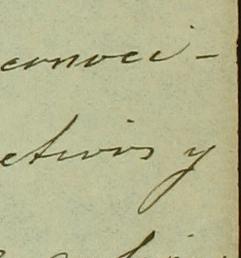 conoci-
ctivos y